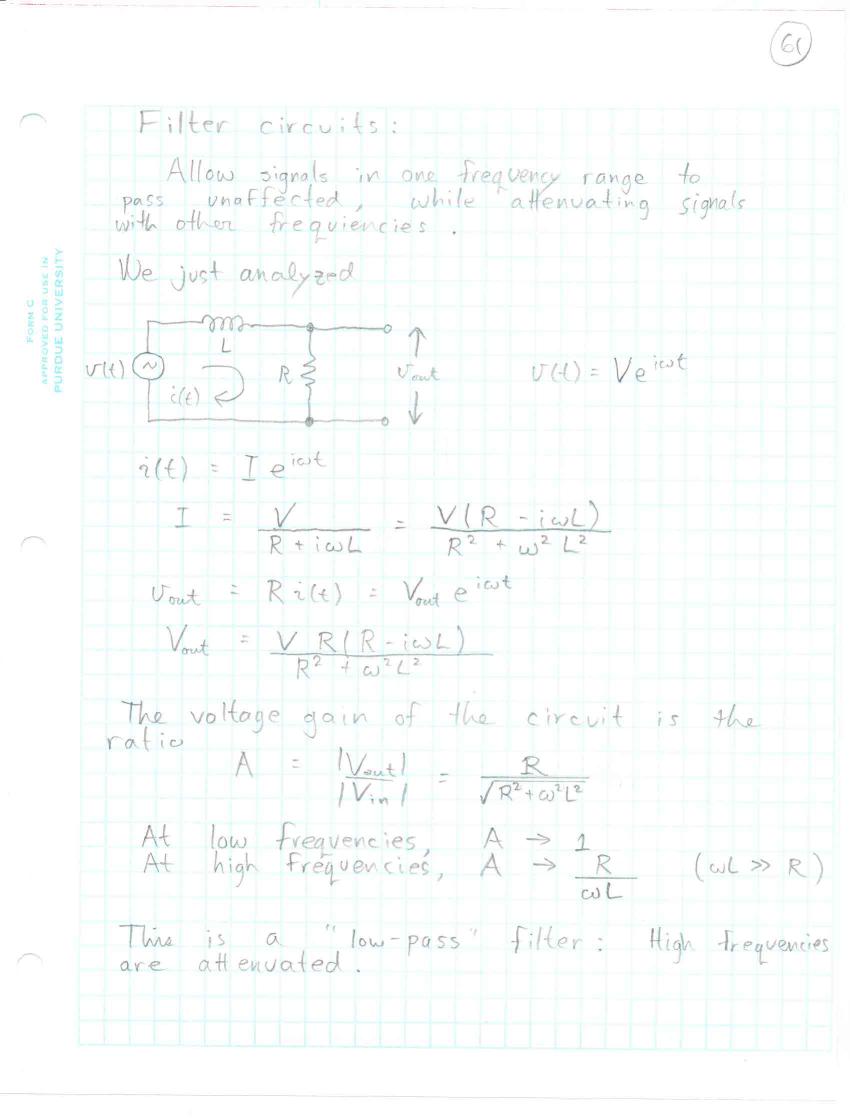 61
FORM C
APPROVED FOR USE IN
PURDUE UNIVERSITY
Filter circuits:
Allow signals in one frequency range to
pass unaffected, while attenuating signals
with other frequiencies.
We just analyzed
L
v(t) ~ i(t) R v_out
v(t) = V e^{iωt}
i(t) = I e^{iωt}
I = V / (R + iωL) = V(R - iωL) / (R² + ω² L²)
v_out = R i(t) = V_out e^{iωt}
V_out = V R(R - iωL) / (R² + ω²L²)
The voltage gain of the circuit is the
ratio
A = |V_out| / |V_in| = R / √(R² + ω²L²)
At low frequencies, A → 1
At high frequencies, A → R / ωL (ωL >> R)
This is a "low-pass" filter: High frequencies
are attenuated.